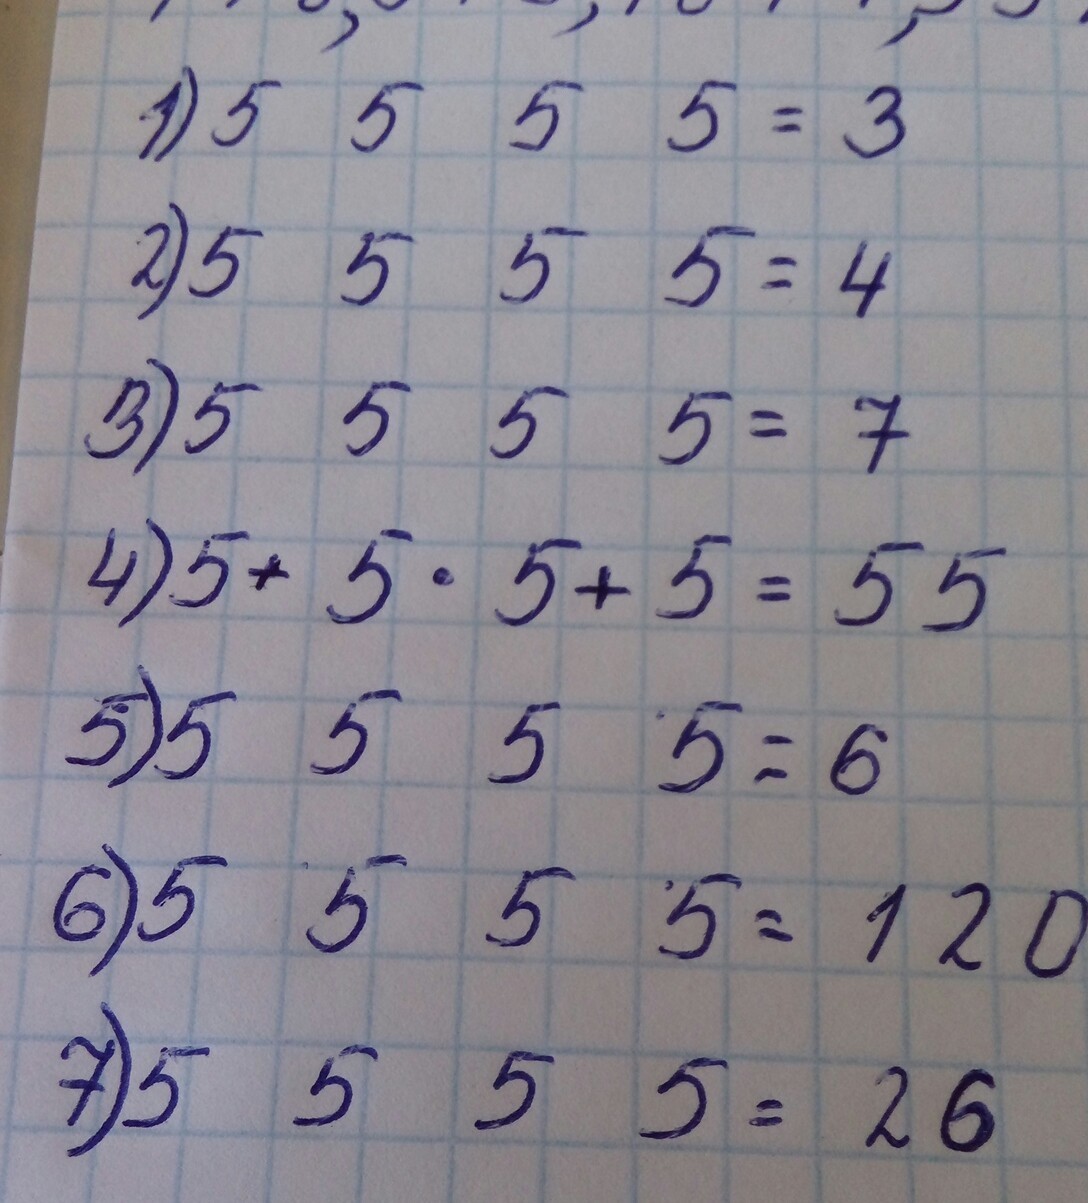 1) 5 5 5 5 = 3
2) 5 5 5 5 = 4
3) 5 5 5 5 = 7
4) 5 + 5 · 5 + 5 = 55
5) 5 5 5 5 = 6
6) 5 5 5 5 = 120
7) 5 5 5 5 = 26